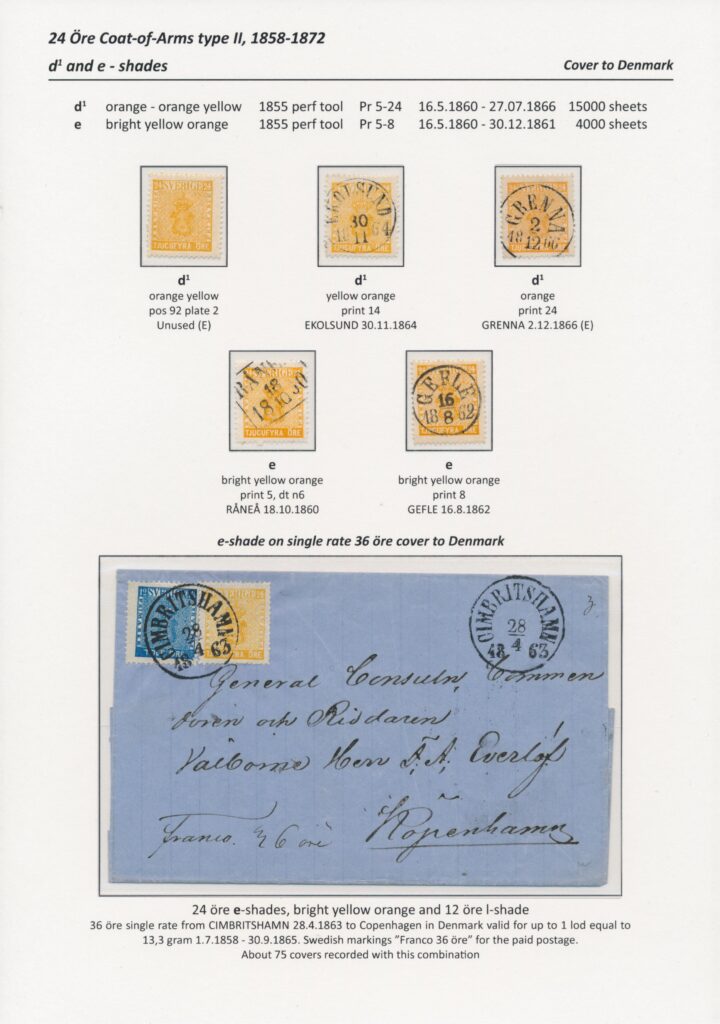 24 Öre Coat-of-Arms type II, 1858-1872
d¹ and e - shades Cover to Denmark
d¹ orange - orange yellow 1855 perf tool Pr 5-24 16.5.1860 - 27.07.1866 15000 sheets
e bright yellow orange 1855 perf tool Pr 5-8 16.5.1860 - 30.12.1861 4000 sheets
24 SVERIGE 24
TJUGUFYRA ÖRE
EKOLSUND
30
11
18 64
TJUGUFYRA ÖRE
GRENNA
2
18 12 66
TJUGUFYRA ÖRE
d¹
orange yellow
pos 92 plate 2
Unused (E)
d¹
yellow orange
print 14
EKOLSUND 30.11.1864
d¹
orange
print 24
GRENNA 2.12.1866 (E)
18
18 10 60
TJUGUFYRA ÖRE
GEFLE
16
18 8 62
TJUGUFYRA ÖRE
e
bright yellow orange
print 5, dt n6
RÅNEÅ 18.10.1860
e
bright yellow orange
print 8
GEFLE 16.8.1862
e-shade on single rate 36 öre cover to Denmark
CIMBRITSHAMN
28
4
18 63
CIMBRITSHAMN
28
4
18 63
General Consuln, Commen
doren och Riddaren
Välborne Herr F. A. Everlöf
Kopenhamn
Franco. 36 öre
24 öre e-shades, bright yellow orange and 12 öre l-shade
36 öre single rate from CIMBRITSHAMN 28.4.1863 to Copenhagen in Denmark valid for up to 1 lod equal to
13,3 gram 1.7.1858 - 30.9.1865. Swedish markings ”Franco 36 öre” for the paid postage.
About 75 covers recorded with this combination